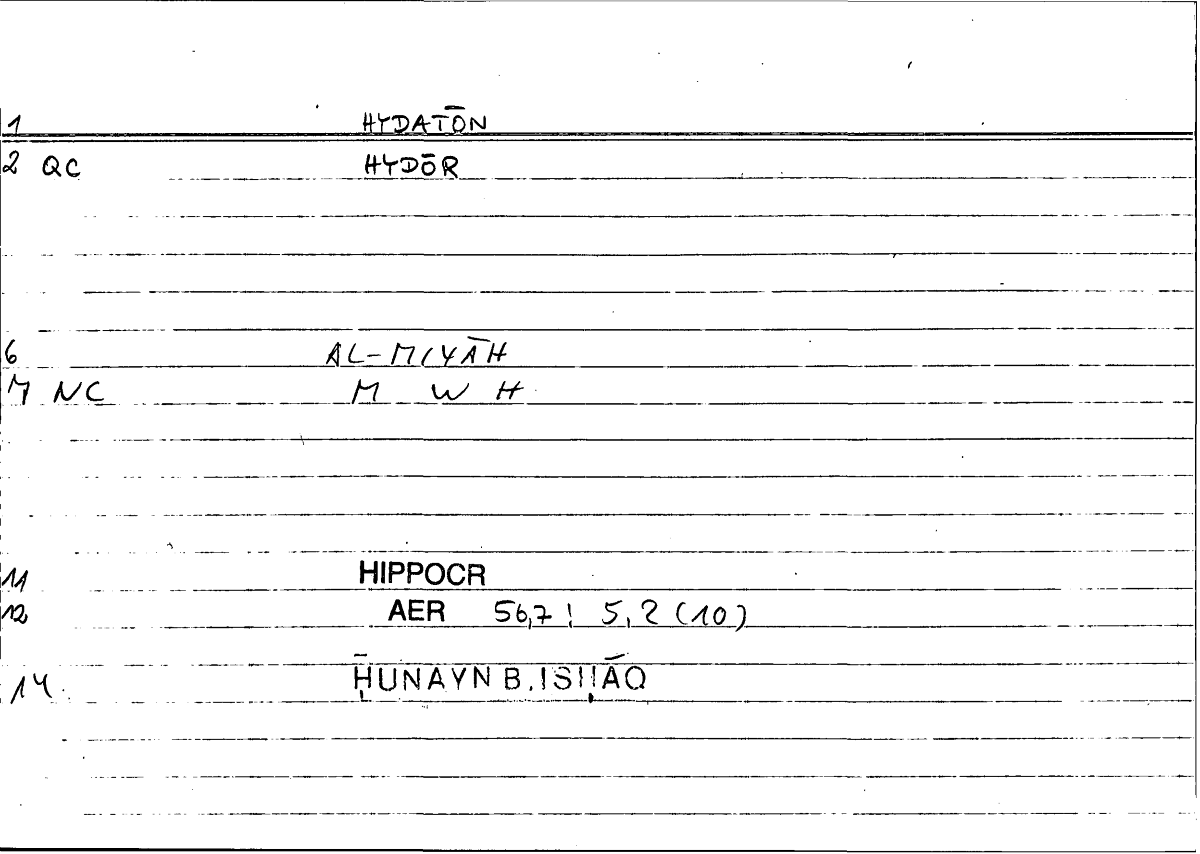 1 HYDATŌN
2 QC HYDŌR
6 AL-MIYĀH
7 NC M W H
11 HIPPOCR
12 AER 56,7 ; 5,2 (10)
14 ḤUNAYN B. ISḤĀQ